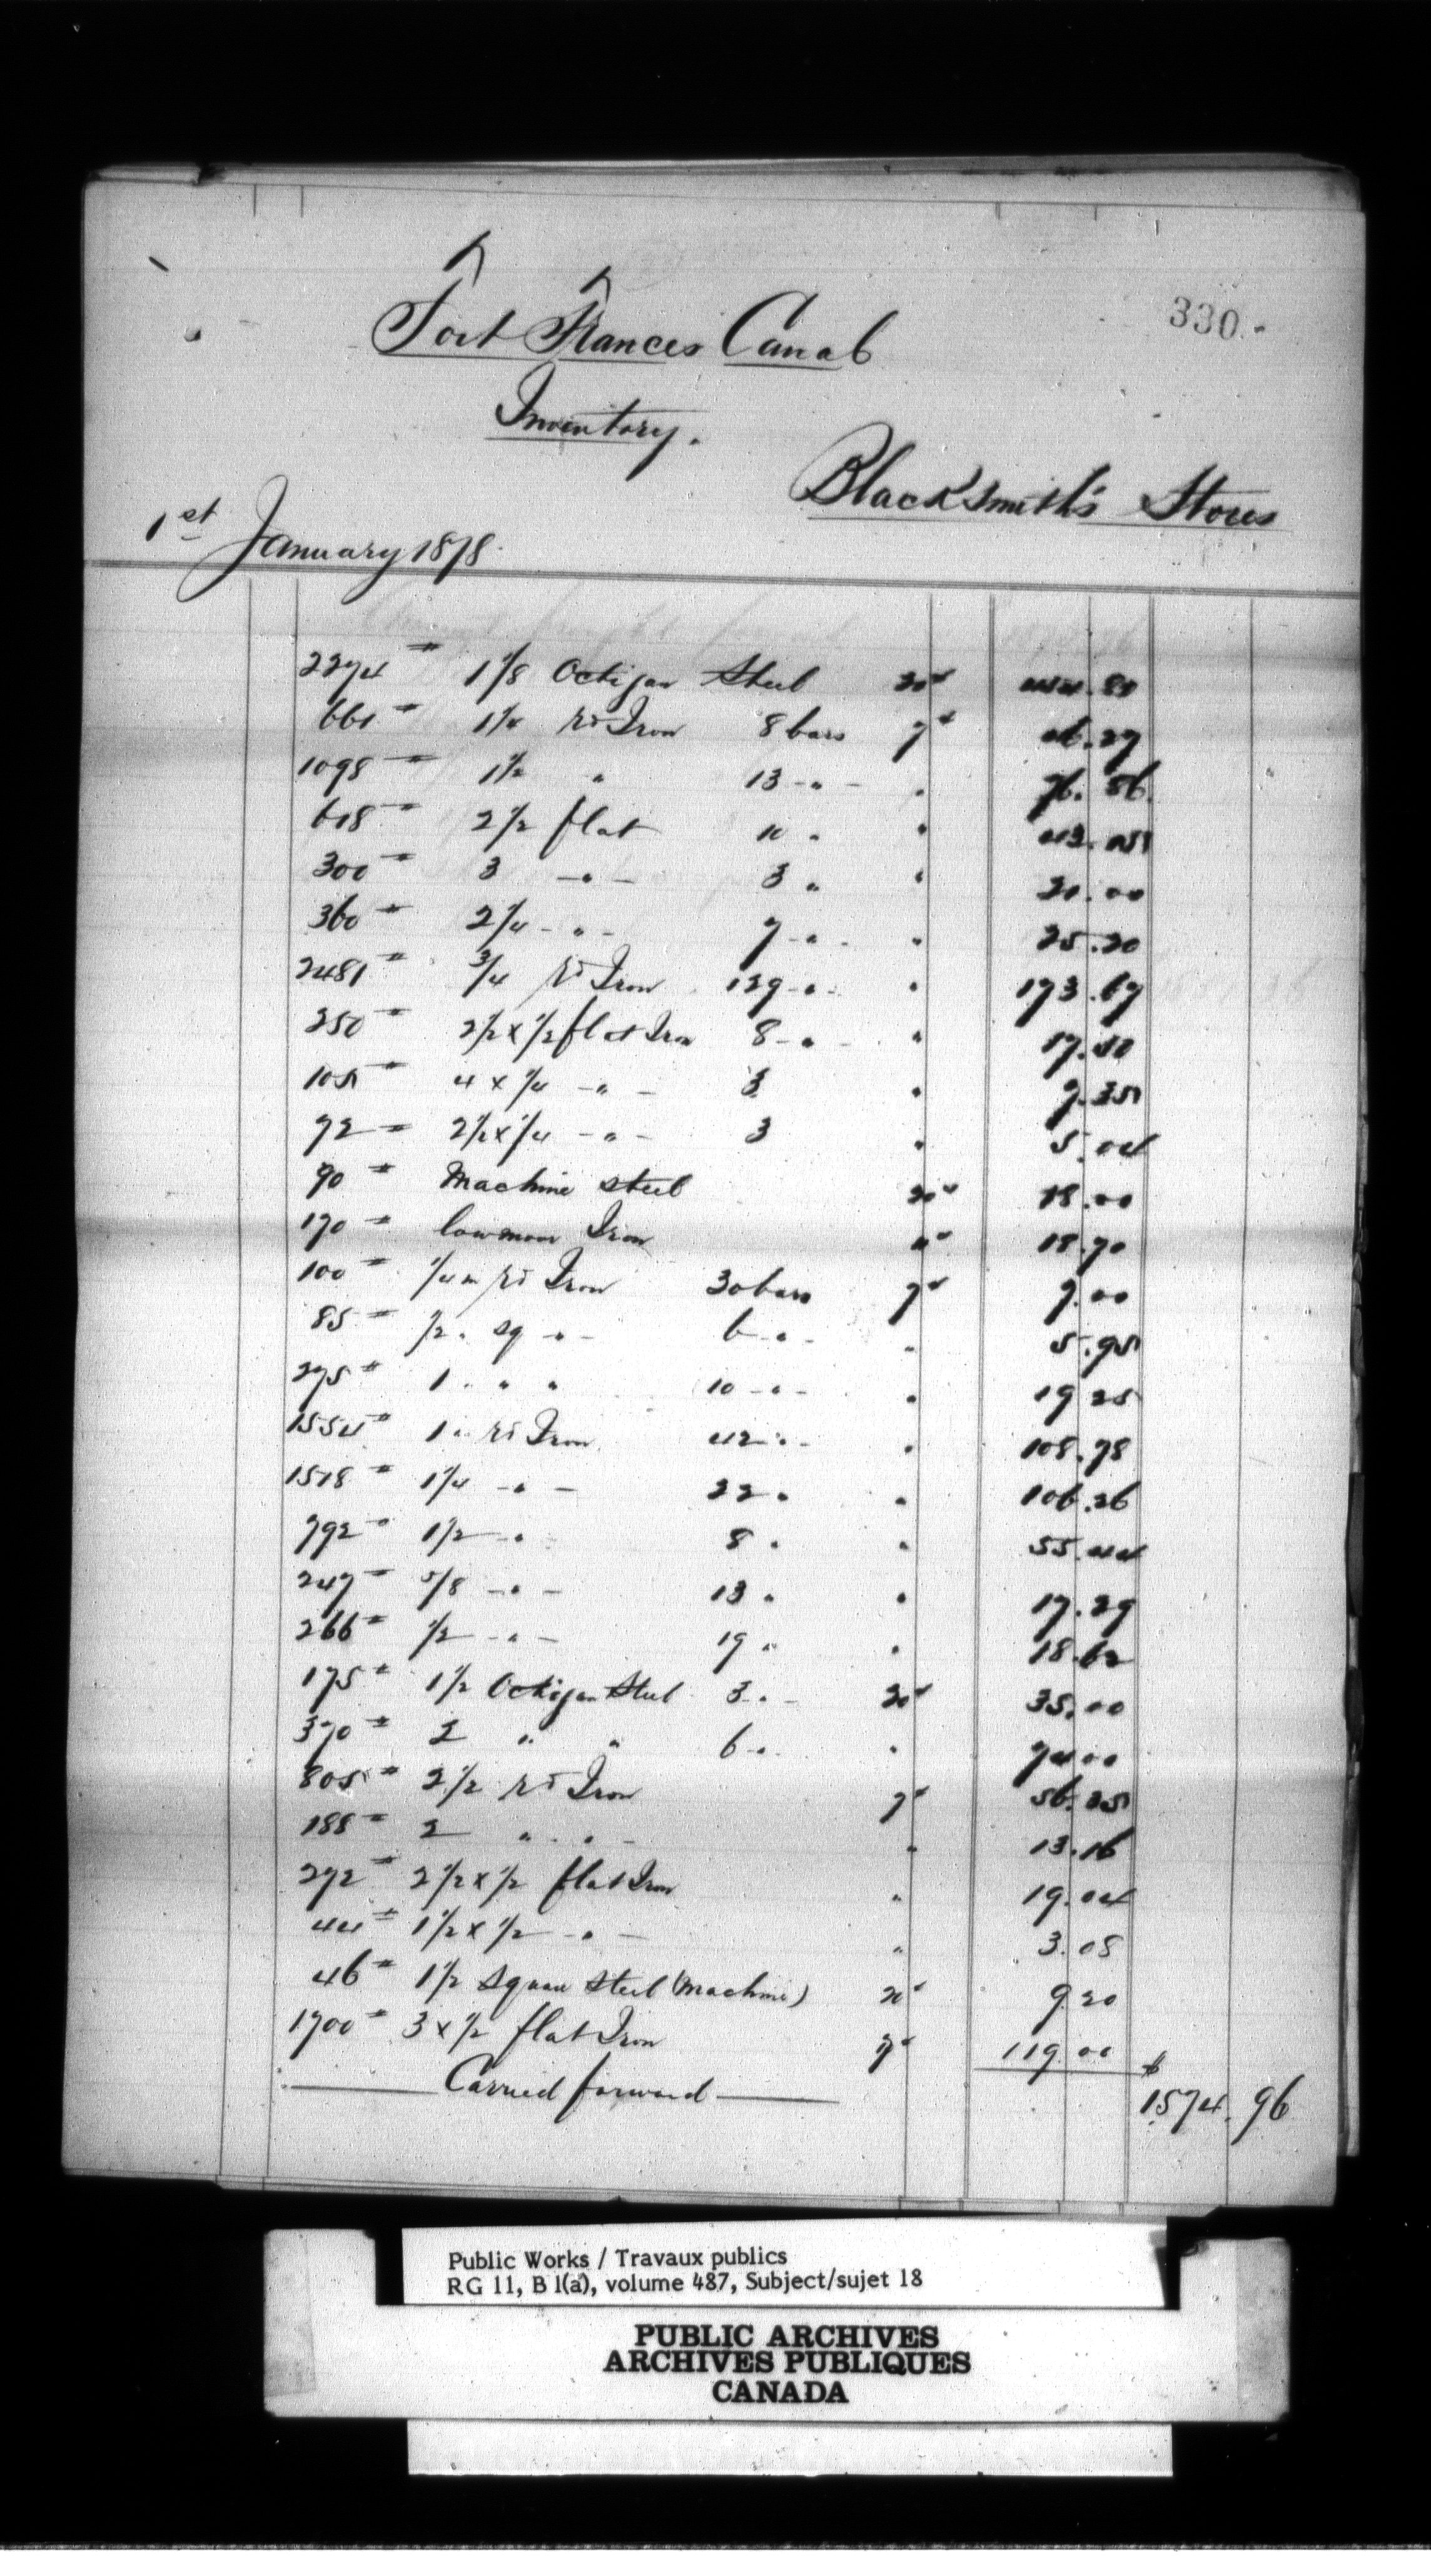 330.
Fort Frances Canal
Inventory.
Blacksmith's Stores
1st January 1878.
2274 # 1 1/8 Octigan Steel 20¢ 454.80
661 # 1 1/4 rd Iron 8 bars 7¢ 46.27
1098 # 1 1/2 " 13 - " - " 76.86
618 # 2 1/2 flat 10 " "
300 # 3 - " - 3 " "
360 # 2 1/4 - " - 7 - " - " 25.20
2481 # 3/4 rd Iron 129 - " - " 173.67
250 # 2 1/2 x 1/2 flat Iron 8 - " - " 17.50
105 # 4 x 1/4 - " - 3 " 7.35
72 # 2 1/2 x 1/4 - " - 3 " 5.04
90 # Machine steel 20¢ 18.00
170 # lowmoor Iron 11¢ 18.70
100 # 1/4 in rd Iron 30 bars 7¢ 7.00
85 # 1/2 " sq - " - 6 - " - " 5.95
275 # 1 " " " 10 - " - " 19 25
1554 # 1 " rd Iron 42 " - " 108.78
1518 # 1 1/4 - " - 22 " " 106.26
792 # 1 1/2 - " - 8 " " 55.44
247 # 5/8 - " - 13 " " 17.29
266 # 1/2 - " - 19 " " 18.62
175 # 1 1/2 Octigan Steel 3 " - 20¢ 35.00
370 # 2 " " 6 - " " 74 00
805 # 2 1/2 rd Iron 7¢ 56.35
188 # 2 " - " - " 13.16
272 # 2 1/2 x 1/2 flat Iron " 19.04
44 # 1 1/2 x 1/2 - " - " 3.08
46 # 1 1/2 Square Steel (Machine) 20¢ 9 20
1700 # 3 x 1/2 flat Iron 7¢ 119.00
Carried forward $ 1574.96
Public Works / Travaux publics
RG 11, B 1(a), volume 487, Subject/sujet 18
PUBLIC ARCHIVES
ARCHIVES PUBLIQUES
CANADA